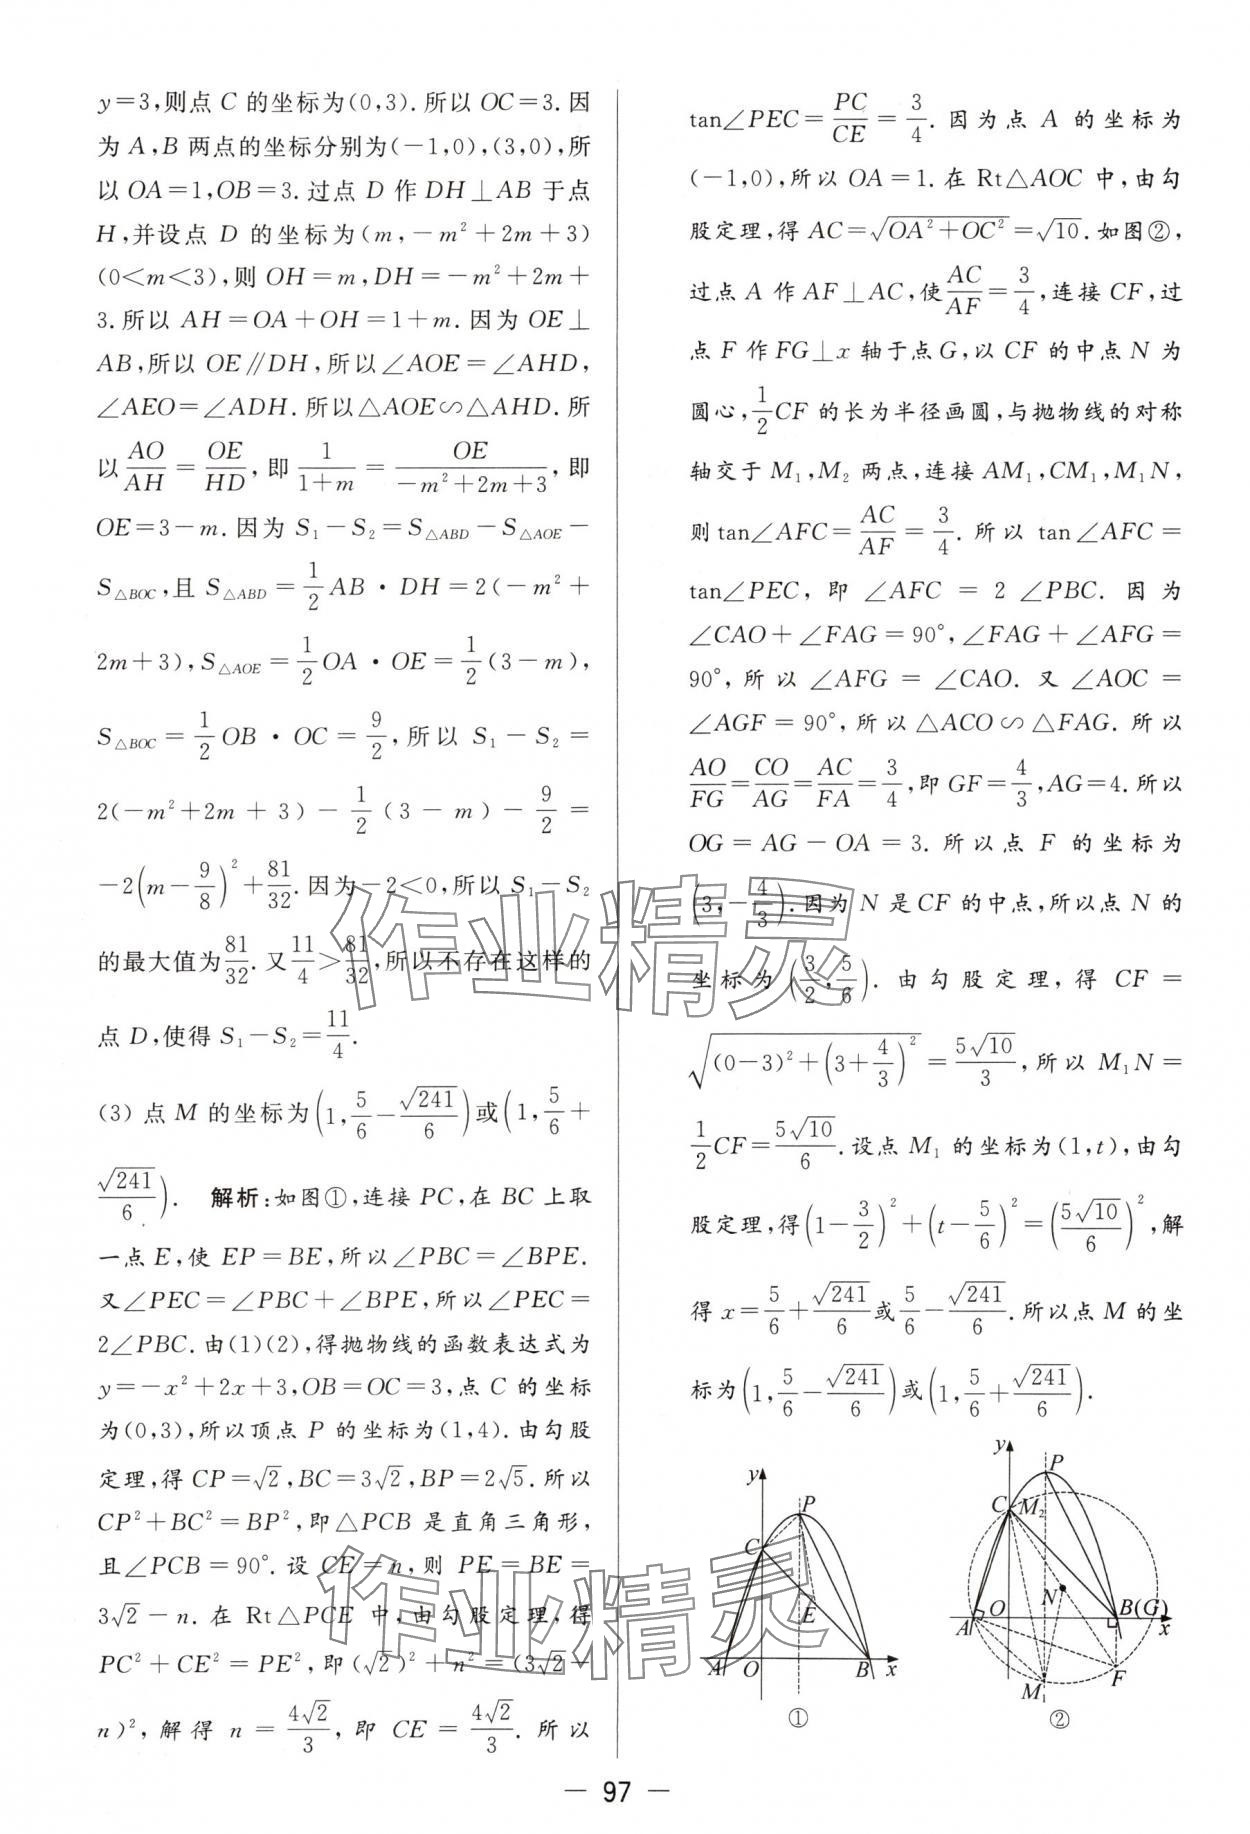 y=3,则点 C 的坐标为(0,3).所以 OC=3.因
为 A,B 两点的坐标分别为(-1,0),(3,0),所
以 OA=1,OB=3.过点 D 作 DH⊥AB 于点
H,并设点 D 的坐标为(m,-m²+2m+3)
(0<m<3),则 OH=m,DH=-m²+2m+
3.所以 AH=OA+OH=1+m.因为 OE⊥
AB,所以 OE∥DH,所以∠AOE=∠AHD,
∠AEO=∠ADH.所以△AOE∽△AHD.所
以 AO/AH = OE/HD,即 1/(1+m) = OE/(-m²+2m+3),即
OE=3-m.因为 S₁-S₂=S△ABD-S△AOE-
S△BOC,且 S△ABD=1/2 AB·DH=2(-m²+
2m+3),S△AOE=1/2 OA·OE=1/2(3-m),
S△BOC=1/2 OB·OC=9/2,所以 S₁-S₂=
2(-m²+2m+3)-1/2(3-m)-9/2=
-2(m-9/8)²+81/32.因为-2<0,所以 S₁-S₂
的最大值为81/32.又11/4>81/32,所以不存在这样的
点 D,使得 S₁-S₂=11/4.
(3) 点 M 的坐标为(1,5/6-√241/6)或(1,5/6+
√241/6). 解析:如图①,连接 PC,在 BC 上取
一点 E,使 EP=BE,所以∠PBC=∠BPE.
又∠PEC=∠PBC+∠BPE,所以∠PEC=
2∠PBC.由(1)(2),得抛物线的函数表达式为
y=-x²+2x+3,OB=OC=3,点 C 的坐标
为(0,3),所以顶点 P 的坐标为(1,4).由勾股
定理,得 CP=√2,BC=3√2,BP=2√5.所以
CP²+BC²=BP²,即△PCB 是直角三角形,
且∠PCB=90°.设 CE=n,则 PE=BE=
3√2-n.在 Rt△PCE 中,由勾股定理,得
PC²+CE²=PE²,即(√2)²+n²=(3√2-
n)²,解得 n=4√2/3,即 CE=4√2/3.所以
tan∠PEC=PC/CE=3/4.因为点 A 的坐标为
(-1,0),所以 OA=1.在 Rt△AOC 中,由勾
股定理,得 AC=√(OA²+OC²)=√10.如图②,
过点 A 作 AF⊥AC,使AC/AF=3/4,连接 CF,过
点 F 作 FG⊥x 轴于点 G,以 CF 的中点 N 为
圆心,1/2 CF 的长为半径画圆,与抛物线的对称
轴交于 M₁,M₂ 两点,连接 AM₁,CM₁,M₁N,
则 tan∠AFC=AC/AF=3/4.所以 tan∠AFC=
tan∠PEC,即∠AFC=2∠PBC.因为
∠CAO+∠FAG=90°,∠FAG+∠AFG=
90°,所以∠AFG=∠CAO.又∠AOC=
∠AGF=90°,所以△ACO∽△FAG.所以
AO/FG=CO/AG=AC/FA=3/4,即 GF=4/3,AG=4.所以
OG=AG-OA=3.所以点 F 的坐标为
(3,-4/3).因为 N 是 CF 的中点,所以点 N 的
坐标为(3/2,5/6).由勾股定理,得 CF=
√((0-3)²+(3+4/3)²)=5√10/3,所以 M₁N=
1/2 CF=5√10/6.设点 M₁ 的坐标为(1,t),由勾
股定理,得(1-3/2)²+(t-5/6)²=(5√10/6)²,解
得 x=5/6+√241/6或5/6-√241/6.所以点 M 的坐
标为(1,5/6-√241/6)或(1,5/6+√241/6).
y
P
C
E
A
O
B
x
①
y
P
C
M₂
N
A
O
B(G)
x
F
M₁
②
作业精灵
作业精灵
— 97 —